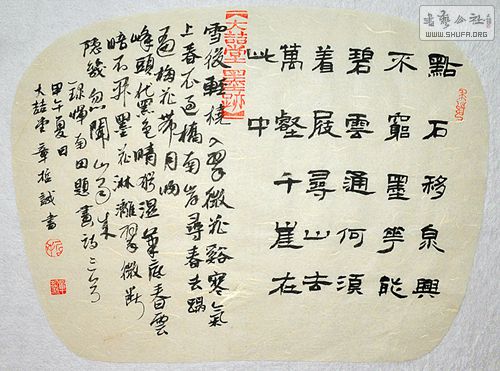 點石移泉興
不窮墨華能
碧雲通何須
着屐尋山去
萬壑千崖在
此中
【大喆堂 墨跡】
雪後輕橈入翠微花谿寒氣
上春衣過橋南岸尋春去踏
遍梅花帶月歸
峰頭黛色晴猶湿筆底春雲
暗不開墨花淋漓翠微斷
隐幾忽聞山雨來
錄惲南田題畫詩三首
甲午夏日
大喆堂章哲誠書
書藝公社
WWW.SHUFA.ORG